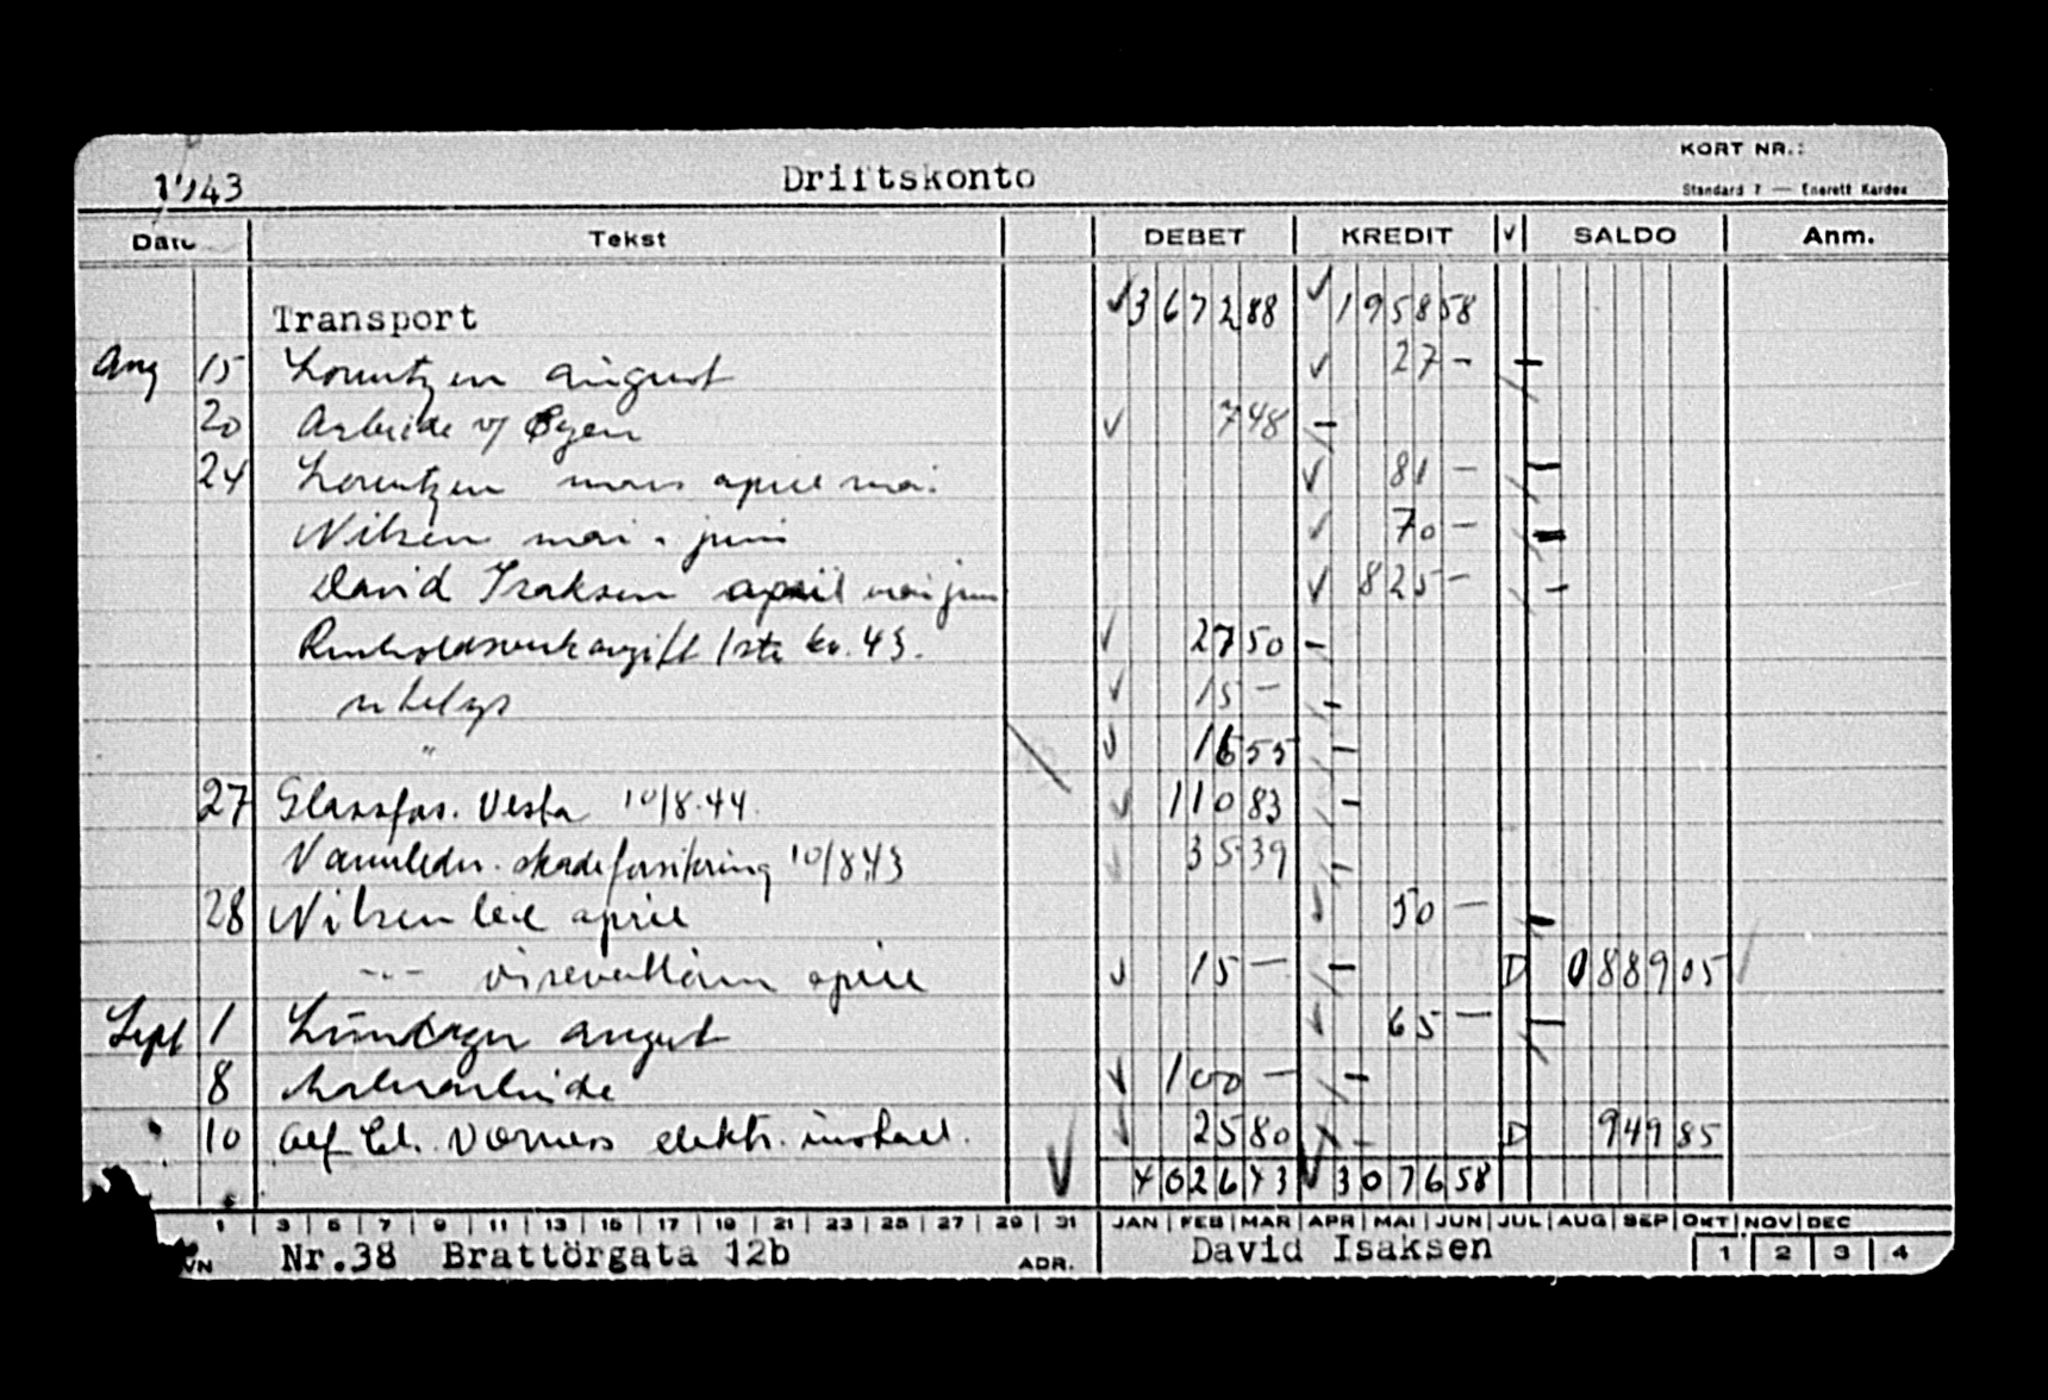 1943 Driftskonto KORT NR.:
Standard 7 — Enerett Kardex
Dato Tekst DEBET KREDIT √ SALDO Anm.
Transport √ 3672 88 √ 1958 58
Aug 15 Lorentzen august √ 27 -
20 Arbeide v/ Øyen √ 7 48 -
24 Lorentzen mars april mai √ 81 -
Nilsen mai - juni √ 70 -
David Isaksen april mai juni √ 825 -
Renholdsverkavgift 1ste kv. 43. √ 27 50 -
√ 15 - -
" √ 16 55 -
27 Glassfors. Vesta 10/8.44. √ 110 83 -
Vannledn. skadeforsikring 10/8 43 √ 35 39 -
28 Nilsen leie april √ 50 -
-"- april √ 15 - - D 0889 05
Sept 1 august √ 65 -
8 Malerarbeide √ 100 - -
10 Alf Chr. elektr. install. √ 25 80 - D 949 85
√ 4026 43 √ 3076 58
1 | 3 | 5 | 7 | 9 | 11 | 13 | 15 | 17 | 19 | 21 | 23 | 25 | 27 | 29 | 31 JAN | FEB | MAR | APR | MAI | JUN | JUL | AUG | SEP | OKT | NOV | DEC
VN Nr.38 Brattörgata 12b ADR. David Isaksen 1 2 3 4